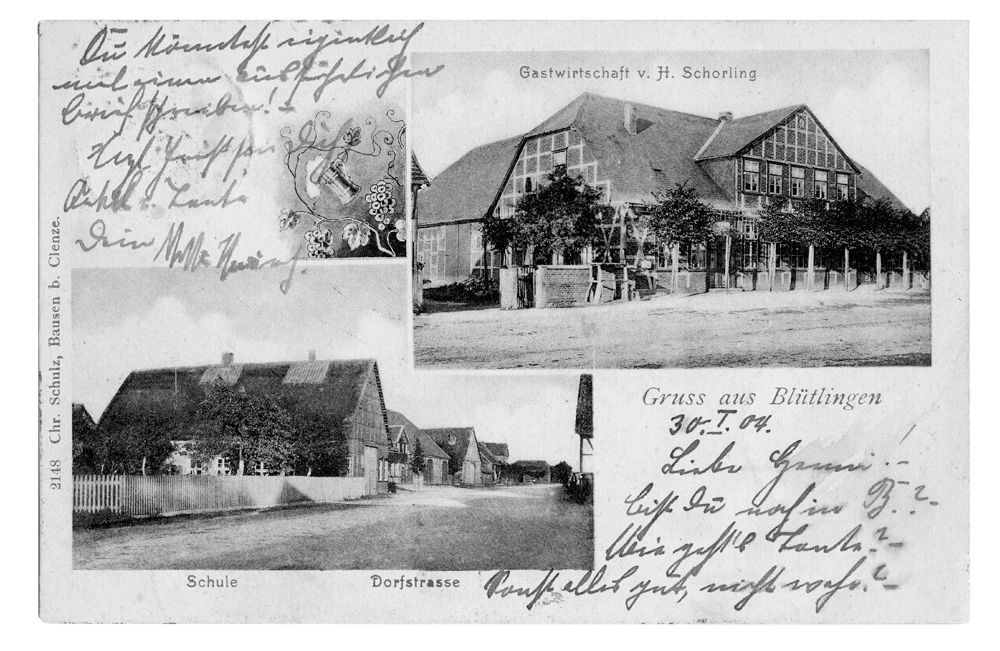 Gastwirtschaft v. H. Schorling
Gruss aus Blütlingen
30. I. 04.
Liebe
bist Du noch in B.?–
Wie geht's Tante?–
Sonst alles gut, nicht wahr?–
Du könntest eigentlich
mal einen ausführlichen
Brief schreiben!–
Herzl.
Onkel u. Tante
Dein
Schule
Dorfstrasse
2148 Chr. Schulz, Bausen b. Clenze.